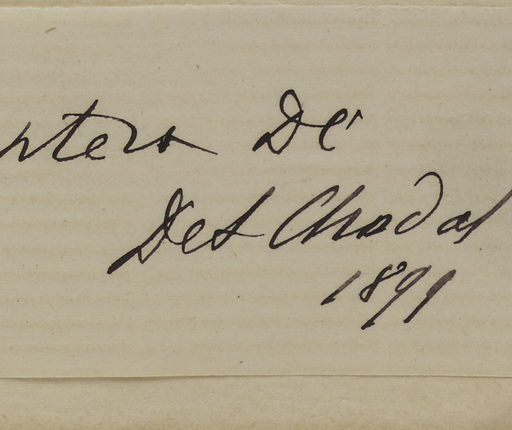 ptera De'
Det Chadat
1899